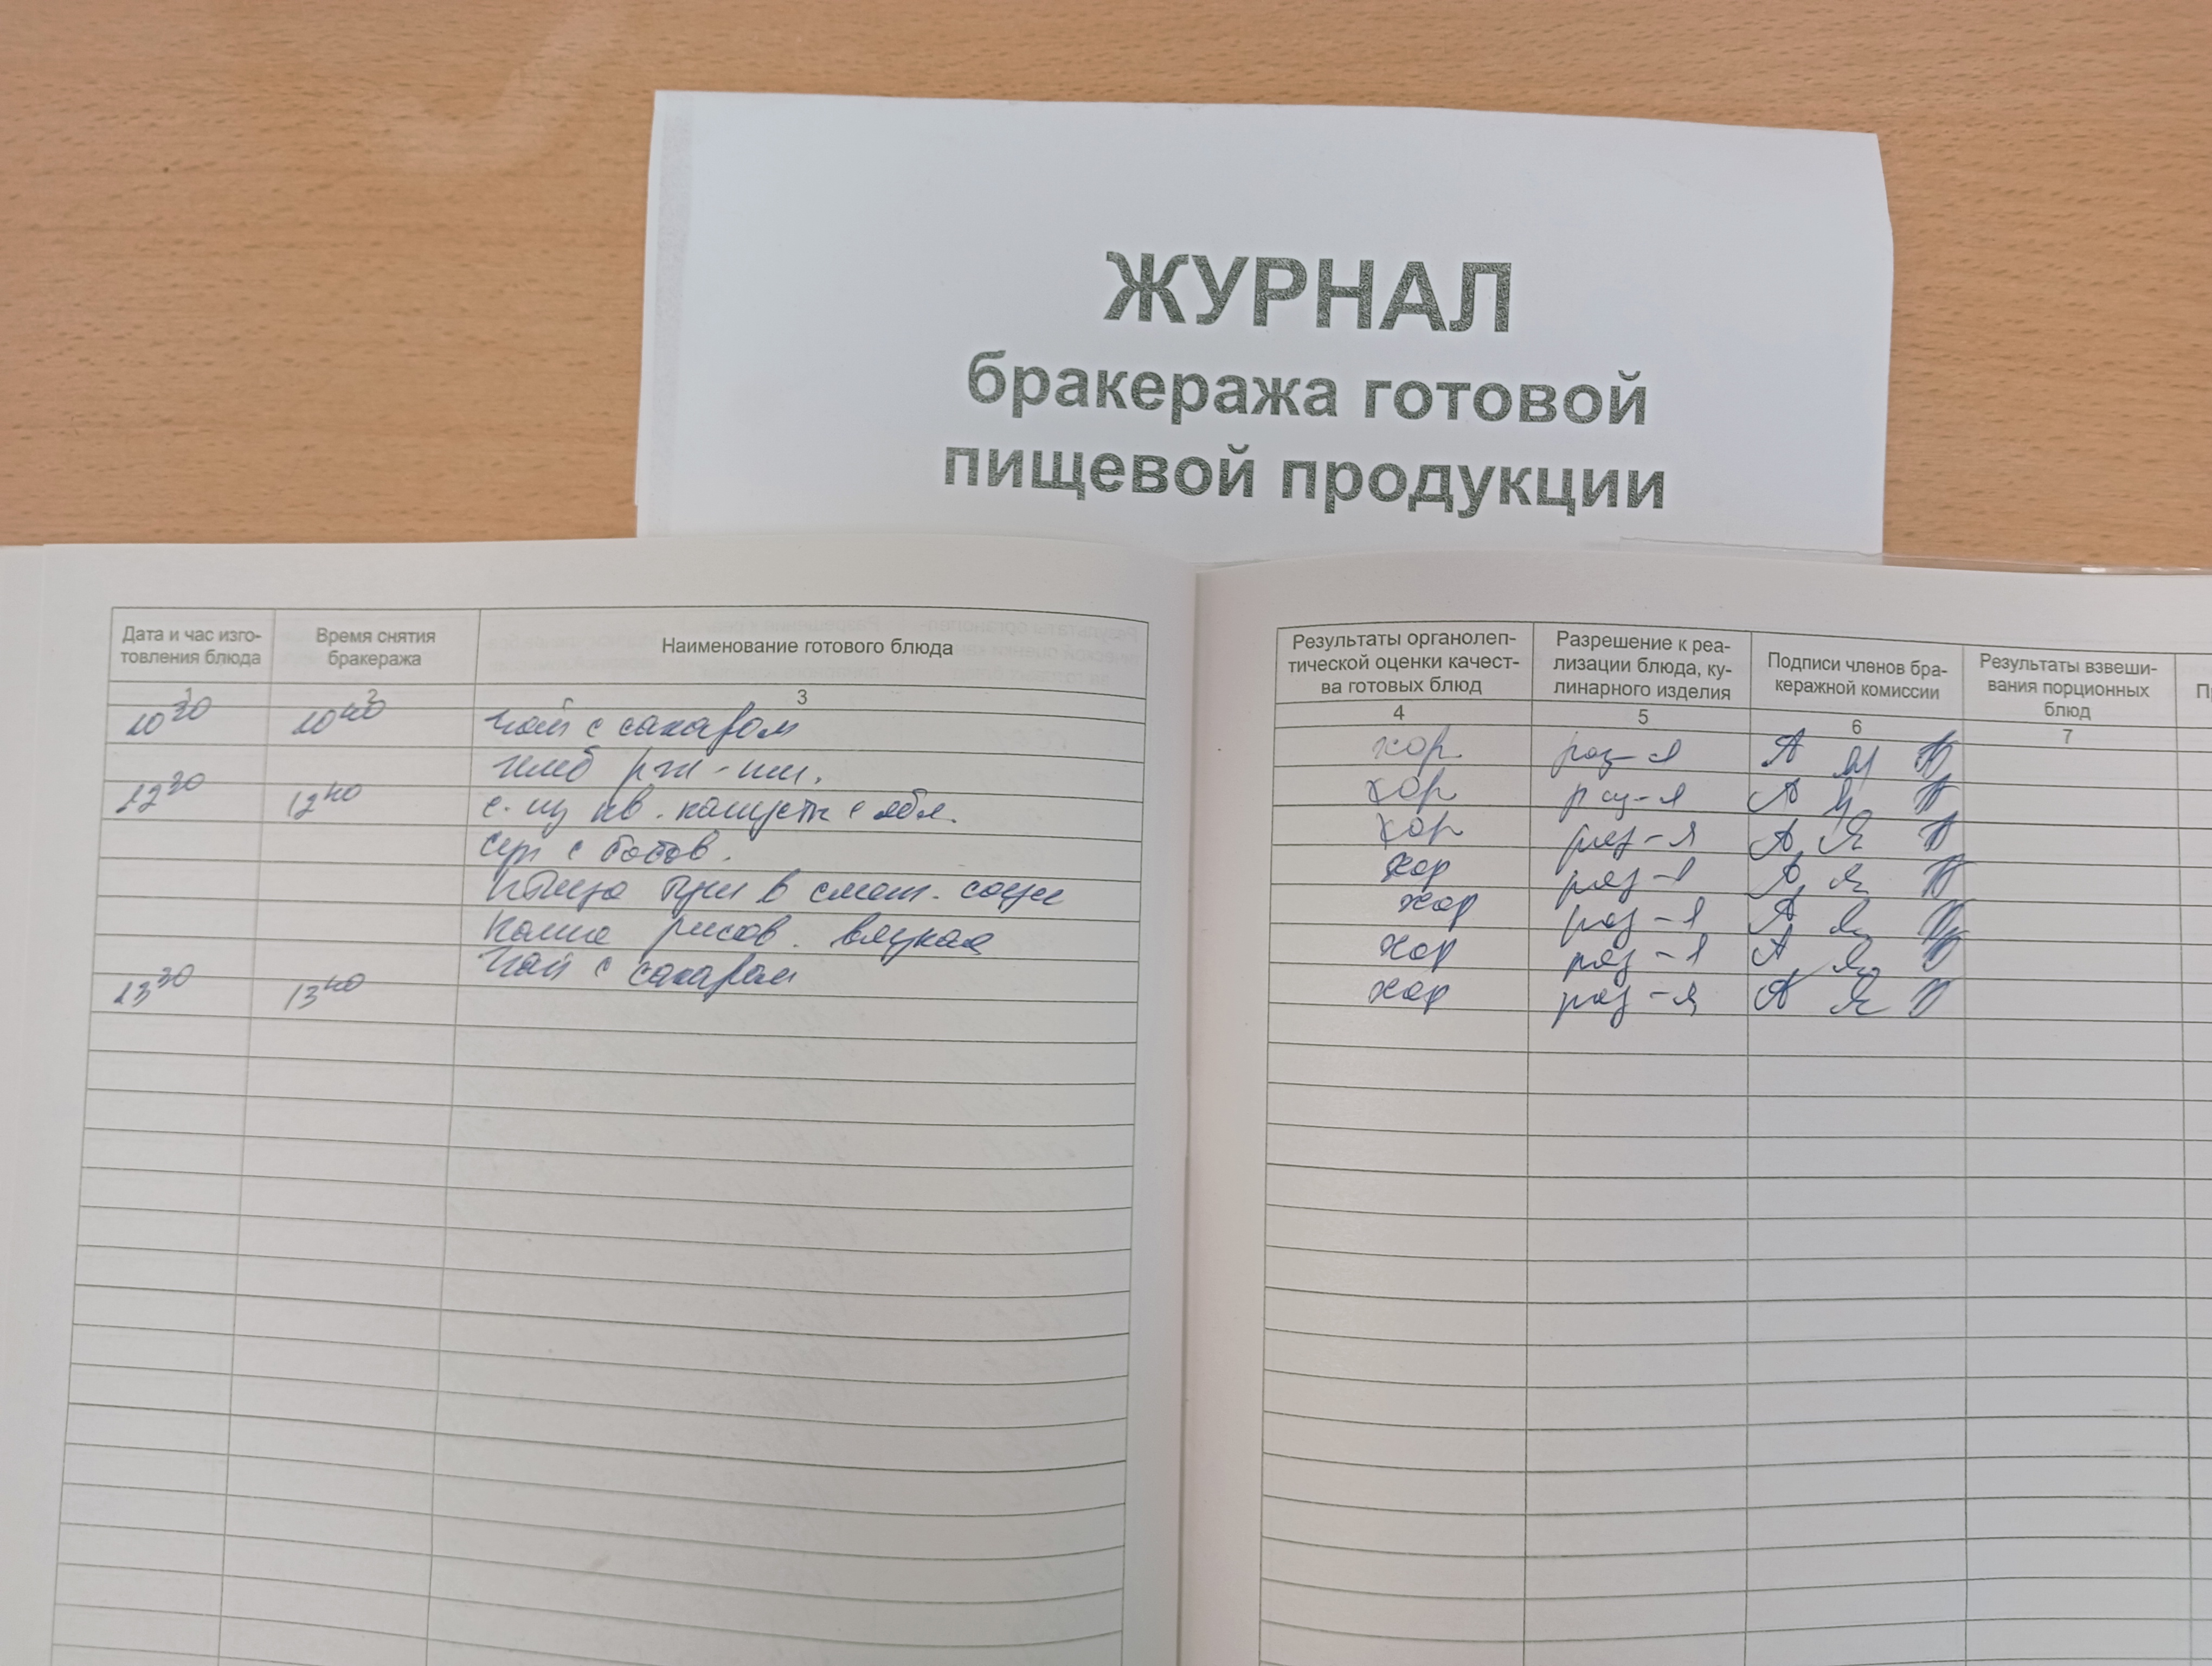 ЖУРНАЛ
бракеража готовой
пищевой продукции
Дата и час изго-
товления блюда
Время снятия
бракеража
Наименование готового блюда
1 2 3
10 30 10 40 Чай с сахаром
Хлеб рж-пш.
12 20 12 40 с. из кв. капусты с ябл.
Суп с бобов.
Птица туш в смет. соусе
Каша рисов. вязкая
13 30 13 40 Чай с сахаром
Результаты органолеп-
тической оценки качест-
ва готовых блюд
Разрешение к реа-
лизации блюда, ку-
линарного изделия
Подписи членов бра-
керажной комиссии
Результаты взвеши-
вания порционных
блюд
4 5 6 7
хор раз-я
хор раз-я
хор раз-я
хор раз-я
хор раз-я
хор раз-я
хор раз-я